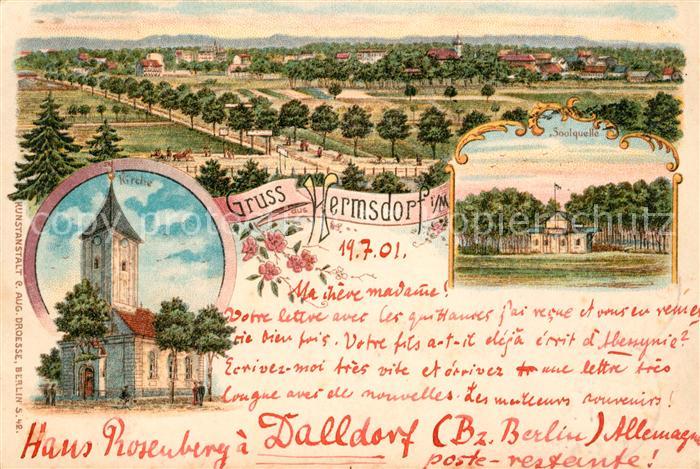 Soolquelle
Kirche
Gruss aus Hermsdorf i/M
19.7.01.
Ma chère madame!
Votre lettre avec les quittances j'ai reçue et vous en remer
cie bien fois. Votre fils a-t-il déjà écrit d'Abessynie?
Ecrivez-moi très vite et écrivez une lettre très
longue avec de nouvelles. Les meilleurs souvenirs!
Hans Rosenberg à Dalldorf (Bz. Berlin) Allemagne
poste-restante!
KUNSTANSTALT C. AUG. DROESSE, BERLIN S. 42.